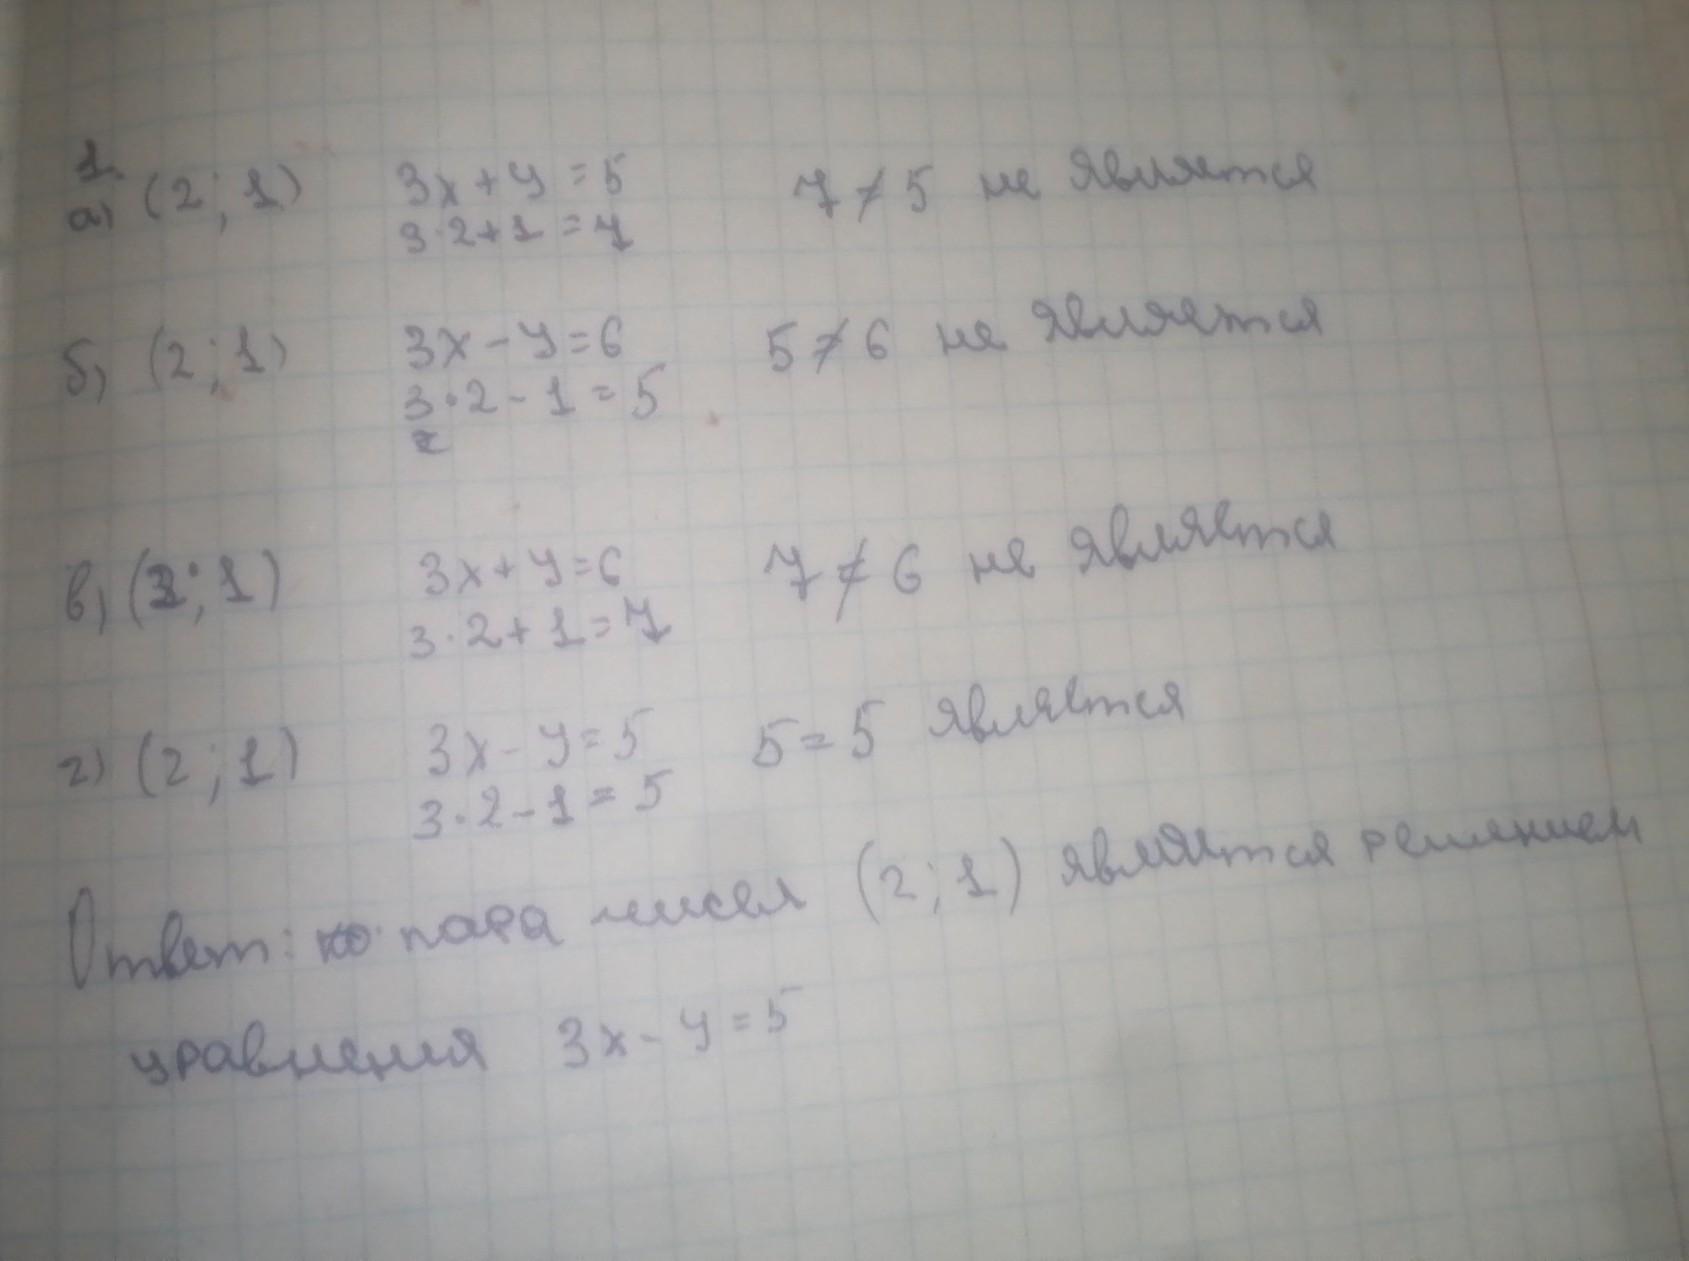 1.
а) (2; 1) 3x + y = 5 7 ≠ 5 не является
3·2+1 = 7
б) (2; 1) 3x - y = 6 5 ≠ 6 не является
3·2 - 1 = 5
в) (2; 1) 3x + y = 6 7 ≠ 6 не является
3·2 + 1 = 7
г) (2; 1) 3x - y = 5 5 = 5 является
3·2 - 1 = 5
Ответ: пара чисел (2; 1) является решением
уравнения 3x - y = 5